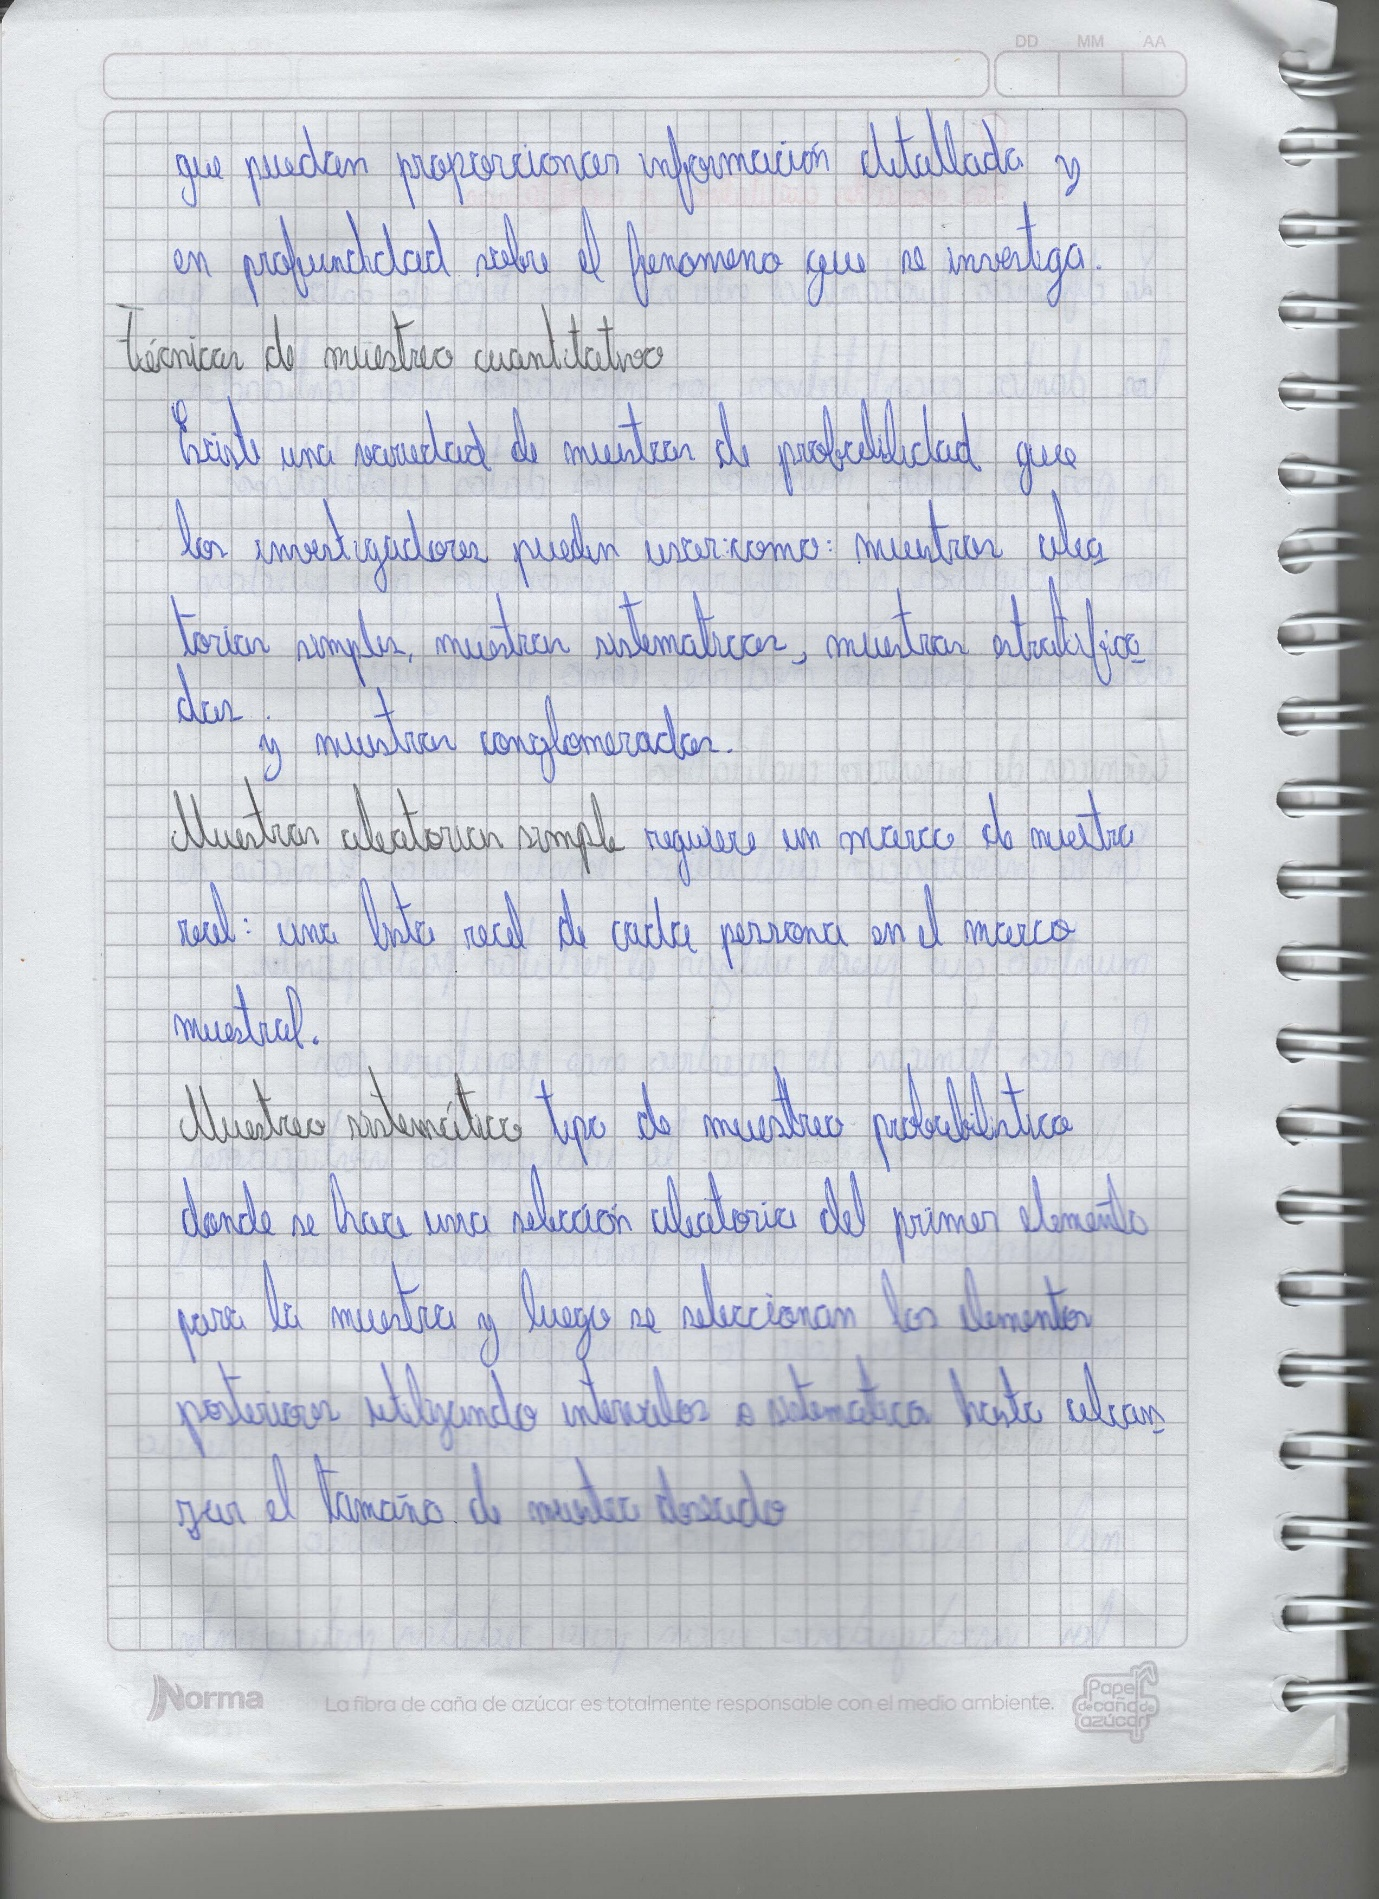 DD MM AA
que puedan proporcionar información detallada y
en profundidad sobre el fenomeno que se investiga.
Técnicas de muestreo cuantitativo
Existe una variedad de muestras de probabilidad que
los investigadores pueden usar: como: muestras alea
torias simples, muestras sistematicas, muestras estratifica
das
y muestras conglomeradas.
Muestras aleatorias simple requiere un marco de muestra
real: una lista real de cada persona en el marco
muestral.
Muestreo sistemático tipo de muestreo probabilistico
donde se hace una selección aleatoria del primer elemento
para la muestra y luego se seleccionan los elementos
posteriores utilizando intervalos o sistematica hasta alcan
zar el tamaño de muestra deseado
Norma
La fibra de caña de azúcar es totalmente responsable con el medio ambiente.
Papel
de caña de
azúcar